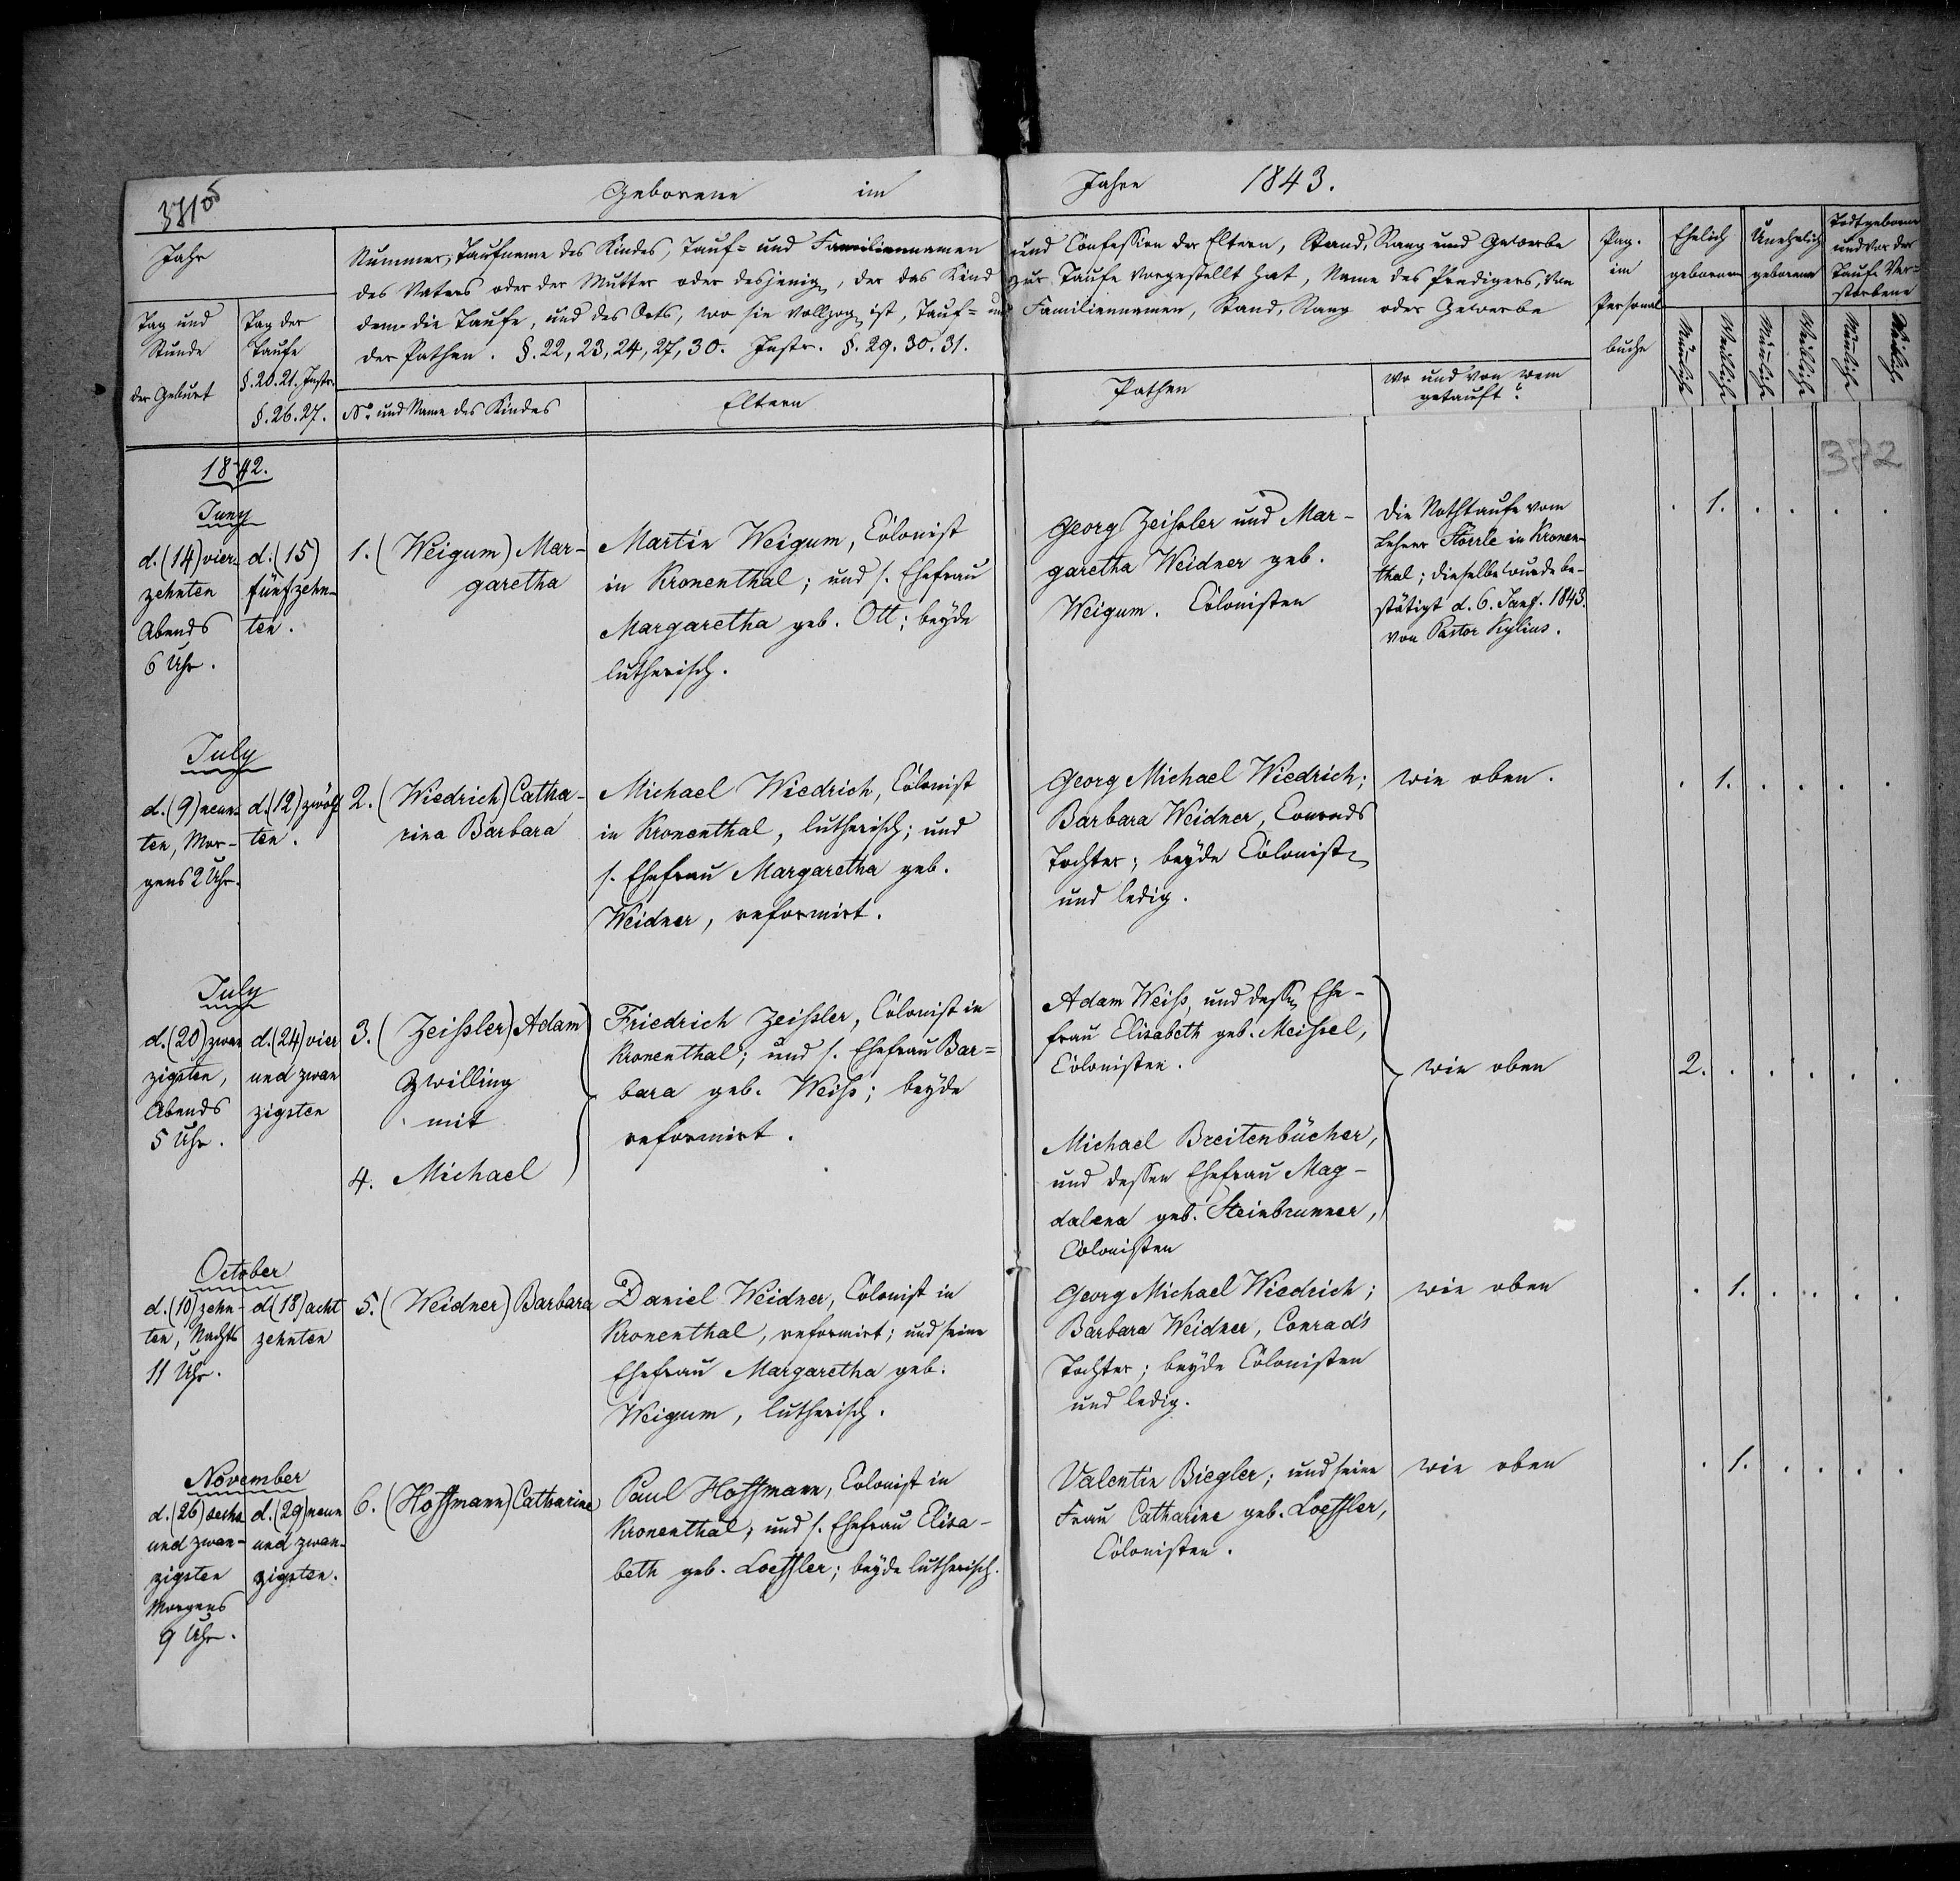 Geborene im Jahre 1843.
Jahr
Tag und
Stunde
der Geburt
Tag der
Taufe
§. 20. 21. Instr.
§. 26. 27.
Nummer, Taufname des Kindes, Tauf= und Familiennamen
des Vaters oder der Mutter oder desjenig, der das Kind
dem die Taufe, und des Orts, wo sie vollzog ist, Tauf= und
der Pathen. §. 22, 23, 24, 27, 30. Instr. §. 29. 30. 31.
No. und Name des Kindes
Eltern
und Confession der Eltern, Stand, Rang und Gewerbe
zur Taufe vorgestellt hat, Name des Predigers, von
Familiennamen, Stand, Rang oder Gewerbe
Pathen
wo und von wem
getauft?
Pag.
im
Personal
buche
Ehelich
geborene
Unehelich
geborene
Todtgeborene
und vor der
Taufe Ver=
storbene
Männliche
Weibliche
Männliche
Weibliche
Männliche
Weibliche
372
1842.
Juny
d. (14) vier-
zehnten
Abends
6 Uhr.
d. (15)
fünfzehn-
ten.
1. (Weigum) Mar-
garetha
Martin Weigum, Colonist
in Kronenthal; und s. Ehefrau
Margaretha geb. Ott; beyde
lutherisch.
Georg Zeissler und Mar-
garetha Weidner geb.
Weigum. Colonisten
Die Nothtaufe vom
Lehrer Störrle in Kronen-
thal; dieselbe wurde be-
stätigt d. 6. Jan. 1843.
von Pastor Kylius.
. 1. . . . .
July
d. (9) neun-
ten, Mor-
gens 2 Uhr.
d. (12) zwölf
ten.
2. (Wiedrich) Catha-
rina Barbara
Michael Wiedrich, Colonist
in Kronenthal, lutherisch; und
s. Ehefrau Margaretha geb.
Weidner, reformirt.
Georg Michael Wiedrich;
Barbara Weidner, Conrads
Tochter; beyde Colonist
und ledig.
wie oben.
. 1. . . . .
July
d. (20) zwan
zigsten,
Abends
5 Uhr.
d. (24) vier
und zwan
zigsten
3. (Zeissler) Adam
Zwilling
mit
4. Michael
Friedrich Zeissler, Colonist in
Kronenthal; und s. Ehefrau Bar=
bara geb. Weiss; beyde
reformirt.
Adam Weiss, und dessen Ehe-
frau Elisabeth geb. Meissel,
Colonisten.
Michael Breitenbücher,
und dessen Ehefrau Mag-
dalena geb. Steinbrunner,
Colonisten
wie oben
2. . . . . .
October
d. (10) zehn-
ten, Nachts
11 Uhr.
d (18) acht
zehnten
5. (Weidner) Barbara
Daniel Weidner, Colonist in
Kronenthal, reformirt; und seine
Ehefrau Margaretha geb.
Weigum, lutherisch.
Georg Michael Wiedrich;
Barbara Weidner, Conrad's
Tochter; beyde Colonisten
und ledig.
wie oben
. 1. . . . .
November
d. (26) sechs
und zwan-
zigsten
Morgens
9 Uhr.
d. (29) neun
und zwan-
zigsten.
6. (Hoffmann) Catharine
Paul Hoffmann, Colonist in
Kronenthal; und s. Ehefrau Elisa-
beth geb. Loeffler; beyde lutherisch.
Valentin Biegler; und seine
Frau Catharine geb. Loeffler,
Colonisten.
wie oben
. 1. . . . .